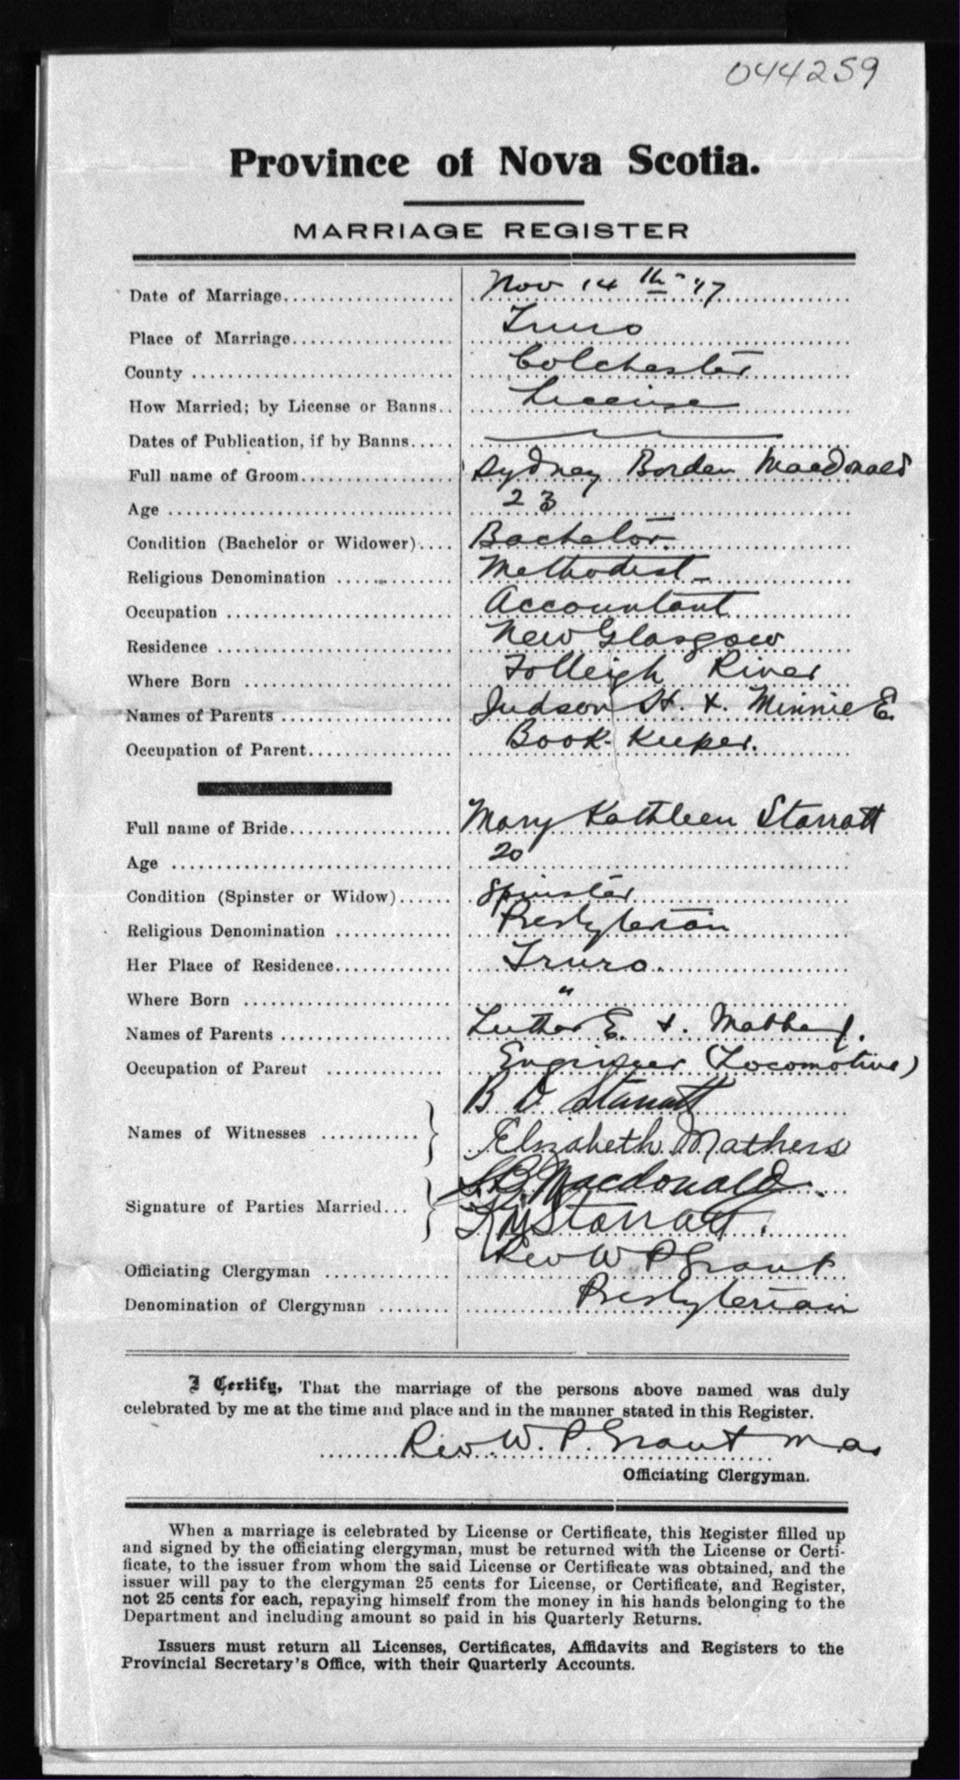 044259
Province of Nova Scotia.
MARRIAGE REGISTER
Date of Marriage Nov 14th '17
Place of Marriage Truro
County Colchester
How Married; by License or Banns License
Dates of Publication, if by Banns
Full name of Groom Sydney Borden Macdonald
Age 23
Condition (Bachelor or Widower) Bachelor.
Religious Denomination Methodist
Occupation Accountant
Residence New Glasgow
Where Born Folleigh River
Names of Parents Judson H. & Minnie E.
Occupation of Parent Book-Keeper.
Full name of Bride Mary Kathleen Starratt
Age 20
Condition (Spinster or Widow) Spinster
Religious Denomination Presbyterian
Her Place of Residence Truro.
Where Born "
Names of Parents Luther E. &
Occupation of Parent Engineer (Locomotive)
B D Starratt
Names of Witnesses
Elizabeth Mathers
S.B. Macdonald.
Signature of Parties Married
Starratt.
Officiating Clergyman Rev W P Grant
Denomination of Clergyman Presbyterian
I Certify, That the marriage of the persons above named was duly
celebrated by me at the time and place and in the manner stated in this Register.
Rev. W. P. Grant M.A.
Officiating Clergyman.
When a marriage is celebrated by License or Certificate, this Register filled up
and signed by the officiating clergyman, must be returned with the License or Certi-
ficate, to the issuer from whom the said License or Certificate was obtained, and the
issuer will pay to the clergyman 25 cents for License, or Certificate, and Register,
not 25 cents for each, repaying himself from the money in his hands belonging to the
Department and including amount so paid in his Quarterly Returns.
Issuers must return all Licenses, Certificates, Affidavits and Registers to the
Provincial Secretary's Office, with their Quarterly Accounts.